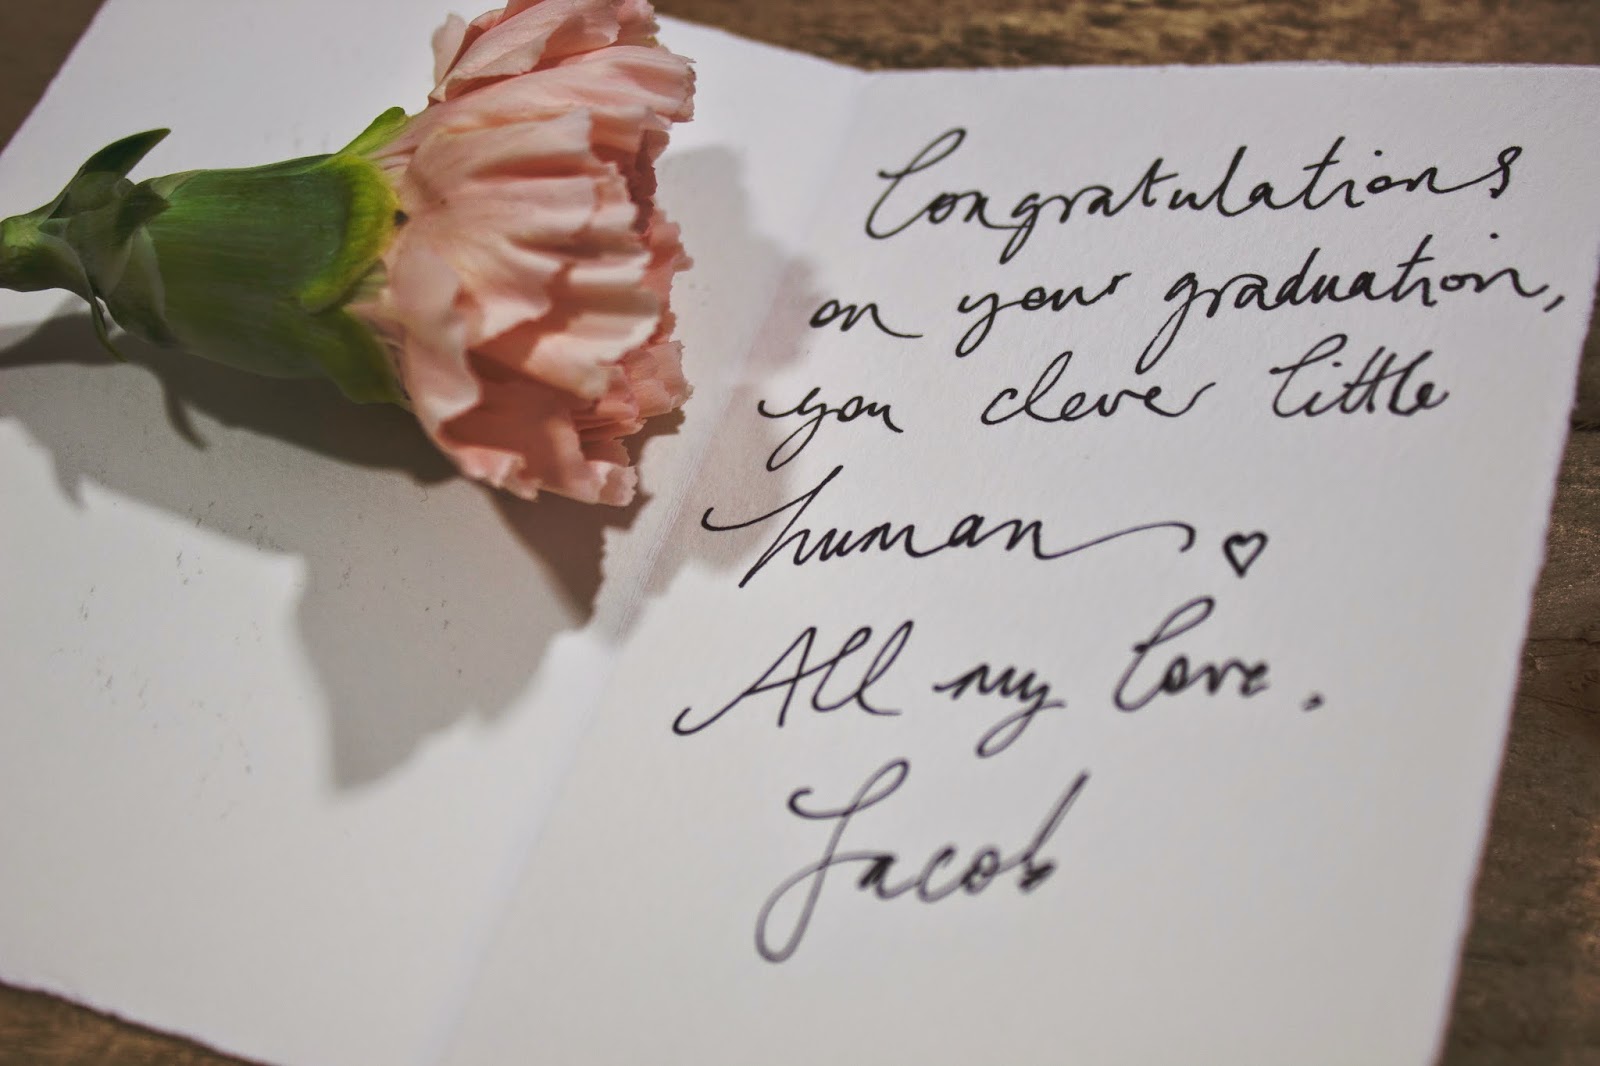 Congratulations
on your graduation,
you clever little
human ♡
All my love.
Jacob